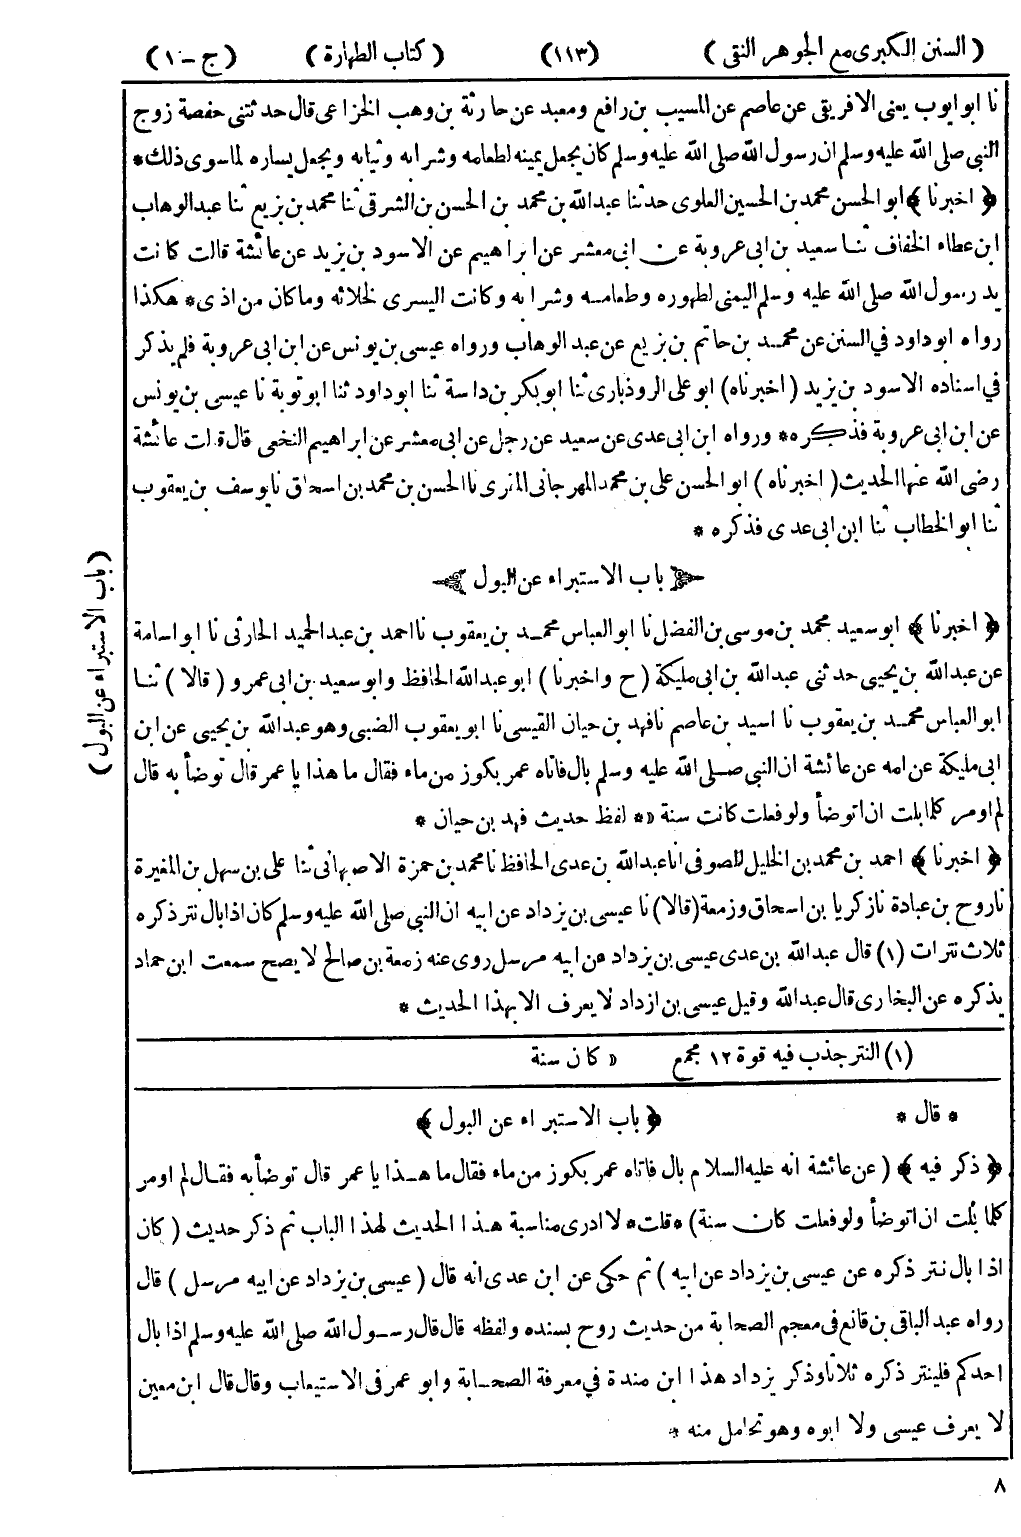 ( السنن الكبرى مع الجوهر النقى ) (١١٣) ( كتاب الطهارة ) ( ج – ١ )
نا ابو ايوب يعنى الافريقى عن عاصم عن المسيب بن رافع ومعبد عن حارثة بن وهب الخزاعى قال حدثتنى حفصة زوج
النبى صلى الله عليه وسلم ان رسول الله صلى الله عليه وسلم كان يجعل يمينه لطعامه وشرابه وثيابه ويجعل يساره لما سوى ذلك *
﴿ اخبرنا ﴾ ابو الحسن محمد بن الحسين العلوى حدثنا عبد الله بن محمد بن الحسن بن الشرقى ثنا محمد بن بزيع ثنا عبد الوهاب
ابن عطاء الخفاف ثنا سعيد بن ابى عروبة عن ابى معشر عن ابراهيم عن الاسود بن يزيد عن عائشة قالت كانت
يد رسول الله صلى الله عليه وسلم اليمنى لطهوره وطعامه وشرابه وكانت اليسرى لخلائه وما كان من اذى * هكذا
رواه ابو داود في السنن عن محمد بن حاتم بن بزيع عن عبد الوهاب ورواه عيسى بن يونس عن ابن ابى عروبة فلم يذكر
في اسناده الاسود بن يزيد ( اخبرناه ) ابو على الروذبارى ثنا ابو بكر بن داسة ثنا ابو داود ثنا ابو توبة نا عيسى بن يونس
عن ابن ابى عروبة فذكره * ورواه ابن ابى عدى عن سعيد عن رجل عن ابى معشر عن ابراهيم النخعى قال قالت عائشة
رضى الله عنها الحديث ( اخبرناه ) ابو الحسن على بن محمد المهرجانى المقرى نا الحسن بن محمد بن اسحاق نا يوسف بن يعقوب
ثنا ابو الخطاب ثنا ابن ابى عدى فذكره *
باب الاستبراء عن البول
( باب الاستبراء عن البول )
﴿ اخبرنا ﴾ ابو سعيد محمد بن موسى بن الفضل نا ابو العباس محمد بن يعقوب نا احمد بن عبد الحميد الحارثى نا ابو اسامة
عن عبد الله بن يحيى حدثنى عبد الله بن ابى مليكة ( ح واخبرنا ) ابو عبد الله الحافظ وابو سعيد بن ابى عمرو ( قالا ) ثنا
ابو العباس محمد بن يعقوب نا اسيد بن عاصم نا فهد بن حيان القيسى نا ابو يعقوب الضبى وهو عبد الله بن يحيى عن ابن
ابى مليكة عن امه عن عائشة ان النبى صلى الله عليه وسلم بال فاتاه عمر بكوز من ماء فقال ما هذا يا عمر قال توضأ به قال
لم اومر كلما بلت ان اتوضأ ولو فعلت كانت سنة «* لفظ حديث فهد بن حيان *
﴿ اخبرنا ﴾ احمد بن محمد بن الخليل الصوفى انا عبد الله بن عدى الحافظ نا محمد بن حمزة الاصبهانى ثنا على بن سهل بن المغيرة
نا روح بن عبادة نا زكريا بن اسحاق وزمعة (قالا) نا عيسى بن يزداد عن ابيه ان النبى صلى الله عليه وسلم كان اذا بال نتر ذكره
ثلاث نترات (١) قال عبد الله بن عدى عيسى بن يزداد عن ابيه مرسل روى عنه زمعة بن صالح لا يصح سمعت ابن حماد
يذكره عن البخارى قال عبد الله وقيل عيسى بن ازداد لا يعرف الا بهذا الحديث *
(١) النتر جذب فيه قوة ١٢ مجمع « كان سنة
* قال * ﴿ باب الاستبراء عن البول ﴾
﴿ ذكر فيه ﴾ ( عن عائشة انه عليه السلام بال فاتاه عمر بكوز من ماء فقال ما هذا يا عمر قال توضأ به فقال لم اومر
كلما بلت ان اتوضأ ولو فعلت كان سنة) * قلت * لا ادرى مناسبة هذا الحديث لهذا الباب ثم ذكر حديث ( كان
اذا بال نتر ذكره عن عيسى بن يزداد عن ابيه ) ثم حكى عن ابن عدى انه قال ( عيسى بن يزداد عن ابيه مرسل ) قال
رواه عبد الباقى بن قانع فى معجم الصحابة من حديث روح بسنده ولفظه قال قال رسول الله صلى الله عليه وسلم اذا بال
احدكم فلينتر ذكره ثلاثا وذكر يزداد هذا ابن مندة في معرفة الصحابة وابو عمر فى الاستيعاب وقال قال ابن معين
لا يعرف عيسى ولا ابوه وهو تحامل منه *
٨